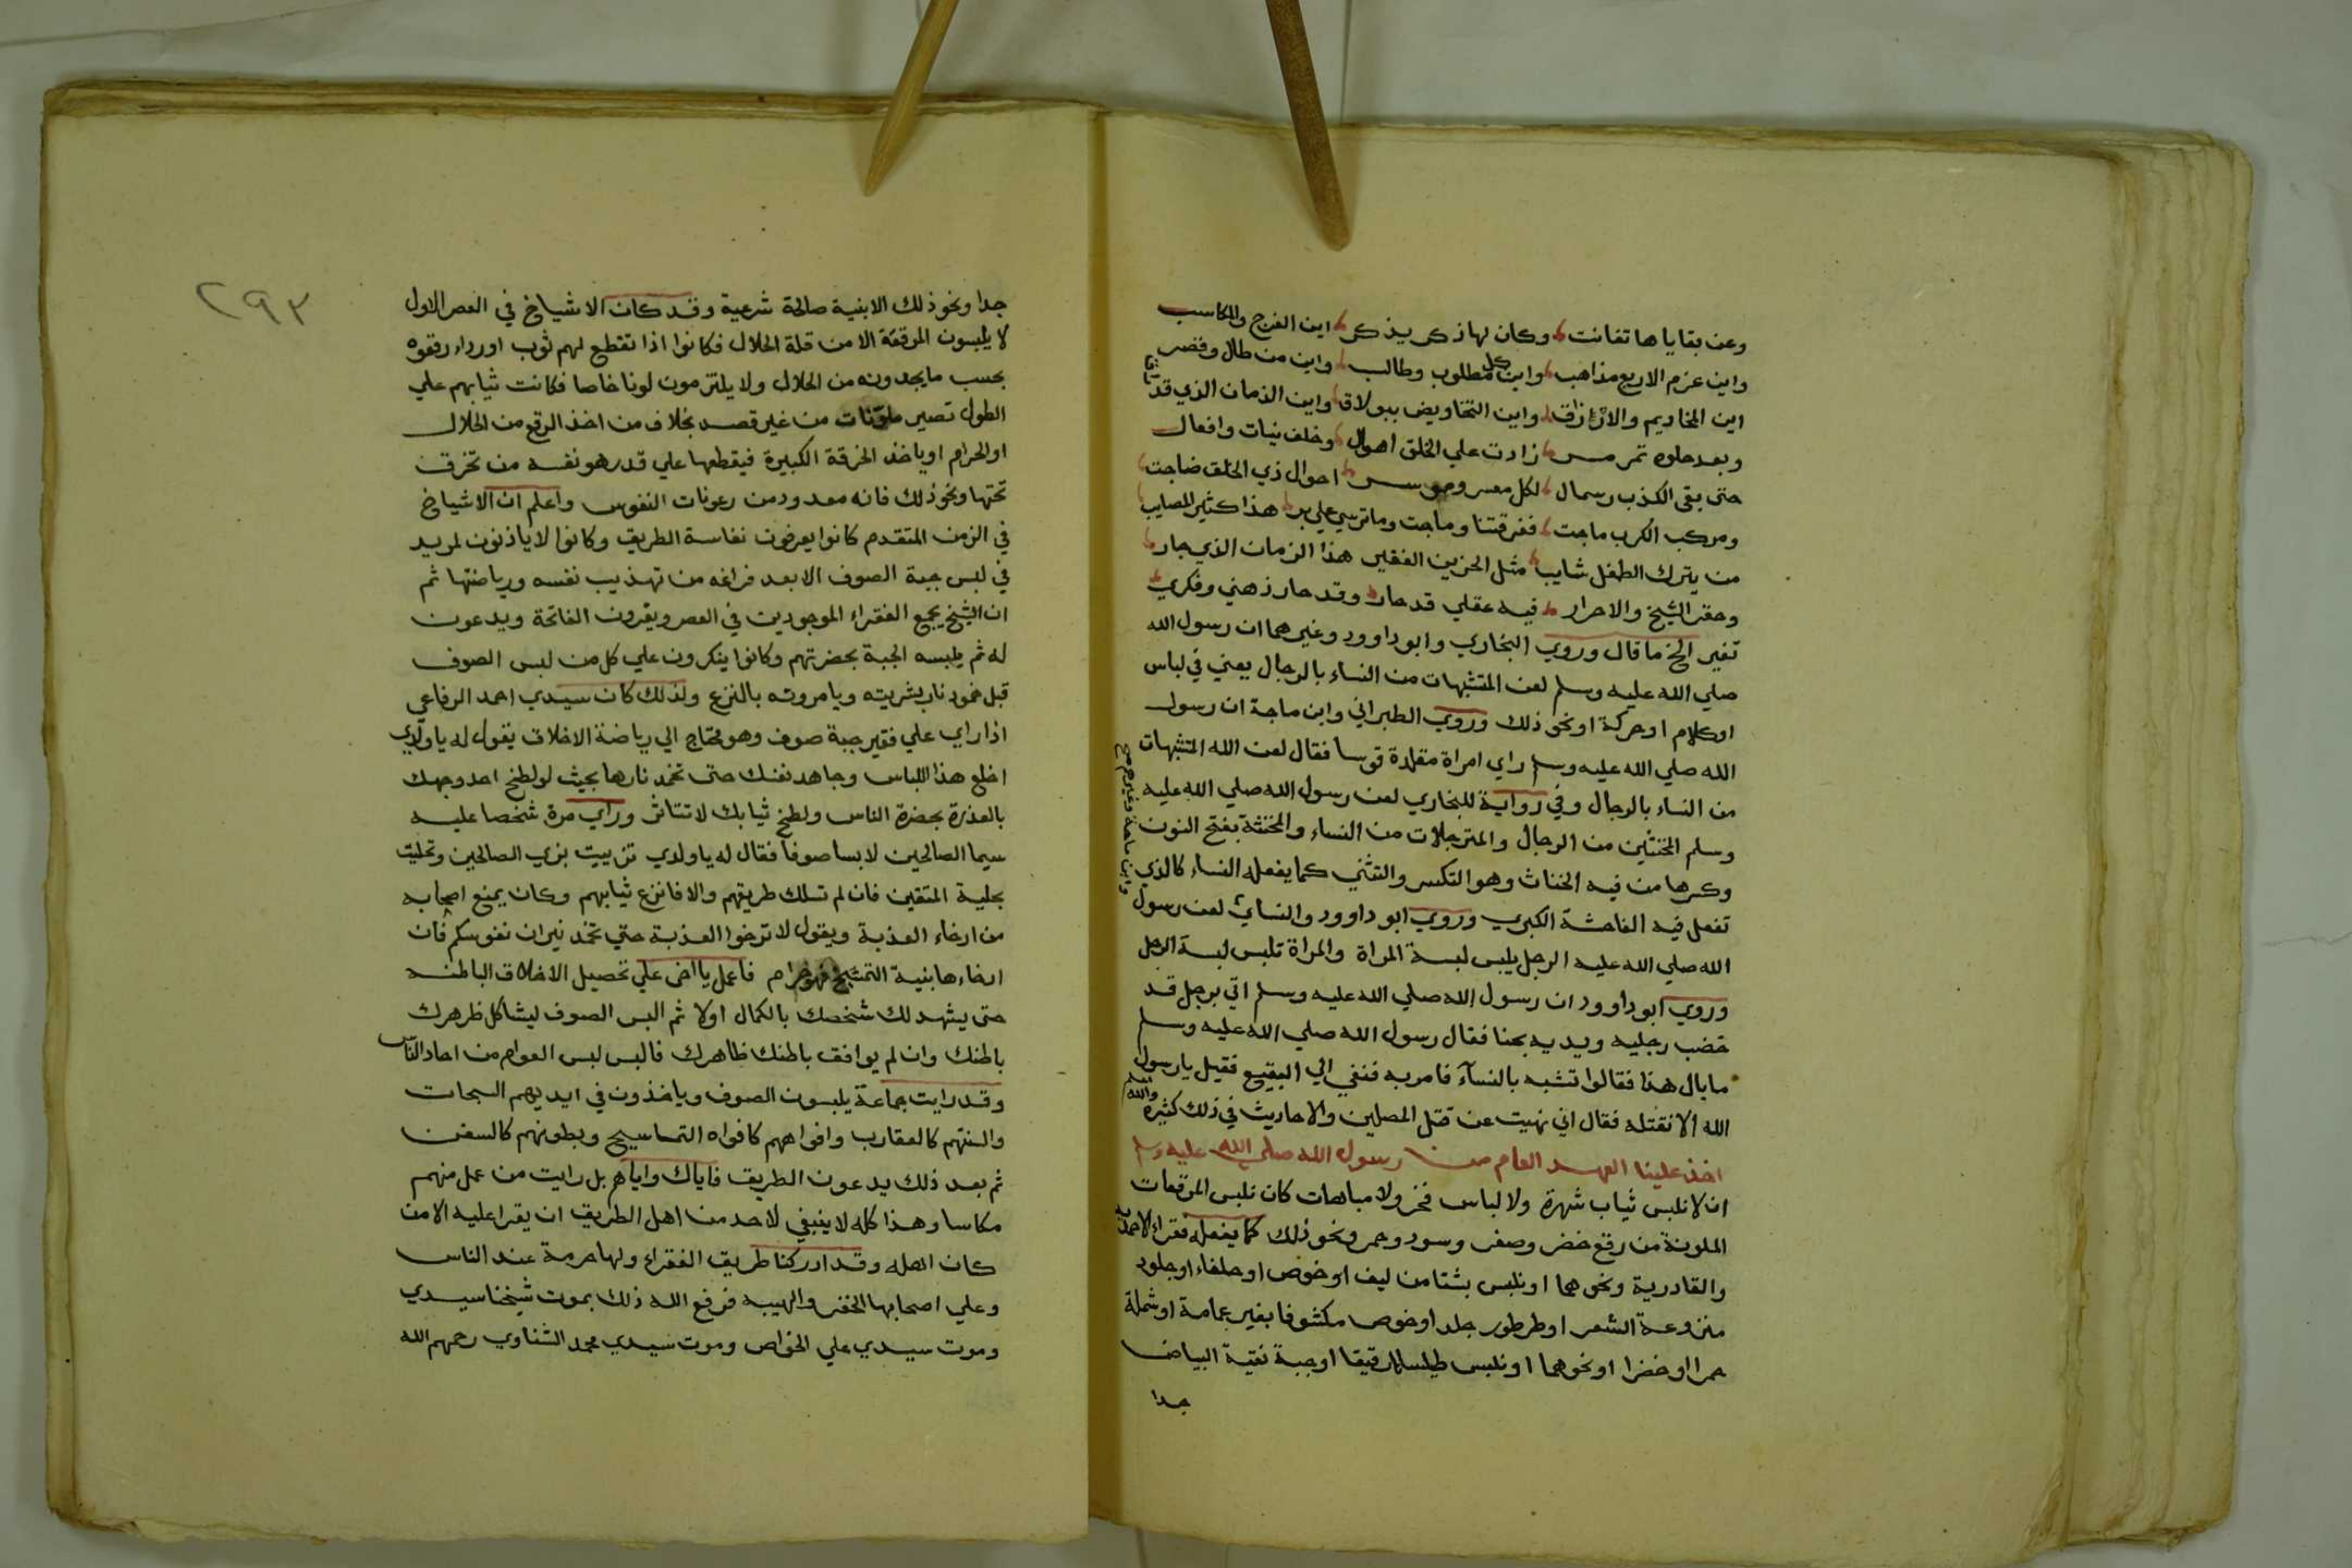 وعن بقاياها تفانت وكان لها ذكر يذكر اين الفرج والمكاسب
واين عزم الاربع مذاهب واين كل مطلوب وطالب واين من طال وقصر
اين المخاديم والارزاق واين التخاويض ببولاق واين الزمان الذي قد
وبعد حلوه تمرمر زادت علي الخلق اهوال وخلف نيات وافعال
حتى بقى الكذب رسمال لكل معسر وموسر احوال ذي الخلق ضاجت
ومركب الكرب ماجت ففرقتنا وماجت وما ترسي علي بر هذا كثير المصايب
من يترك الطفل شايب مثل الحزين الفقير هذا الزمان الذي جار
وحقر الشيخ والاحرار فيه عقلي قد حار وقد حار ذهني وفكري
تغير الخ ما قال وروي البخاري وابو داوود وغيرهما ان رسول الله
صلي الله عليه وسلم لعن المتشبهات من النساء بالرجال يعني في لباس
اوكلام اوحركة اونحو ذلك وروي الطبراني وابن ماجة ان رسول
الله صلي الله عليه وسلم راي امراة مقلدة قوسا فقال لعن الله المتشبهات
من النساء بالرجال وفي رواية للبخاري لعن رسول الله صلي الله عليه
وسلم المخنثين من الرجال والمترجلات من النساء والمخنثة بفتح النون
وكسرها من فيه الخناث وهو التكسر والتثني كما يفعله النساء كالذي
تفعل فيه الفاحشة الكبري وروي ابو داوود والنسائ لعن رسول
الله صلي الله عليه الرجل يلبس لبسة المراة والمراة تلبس لبسة الرجل
وروي ابو داوود ان رسول الله صلي الله عليه وسلم اتي برجل قد
خضب رجليه ويديه بحنا فقال رسول الله صلي الله عليه وسلم
ما بال هذا فقالوا تشبه بالنسآء فامر به فنفي الي البقيع فقيل يا رسول
الله الا نقتله فقال اني نهيت عن قتل المصلين والاحاديث في ذلك كثيرة والله اعلم
اخذ علينا العهد العام من رسول الله صلي الله عليه وسلم
ان لا نلبس ثياب شهرة ولا لباس فخر ولا مباهات كان نلبس المرقعات
الملونة من رقع خضر وصفر وسود وحمر ونحو ذلك كما يفعله فقراء الاحمدية
والقادرية ونحوهما اونلبس بشتا من ليف اوخوص اوحلفاء اوجلود
منزوعة الشعر اوطرطور جلد اوخوص مكشوفا بغير عمامة اوشملة
حمرا اوخضرا اونحوهما اونلبس طيلسانا رقيقا اوجبة نقية البياض
جدا
وابن ماجة وغيرهم
٢٩٣
جدا ونحو ذلك الابنية صالحة شرعية وقد كان الاشياخ في العصر الاول
لا يلبسون المرقعة الا من قلة الحلال فكانوا اذا تقطع لهم ثوب اورداء رقعوه
بحسب ما يجدونه من الحلال ولا يلتزمون لونا خاصا فكانت ثيابهم علي
الطول تصير ملونات من غير قصد بخلاف من اخذ الرقع من الحلال
اوالحرام اوياخذ الخرقة الكبيرة فيقطعها علي قدر هو نفسه من تخرق
تحتها ونحو ذلك فانه معدود من رعونات النفوس واعلم ان الاشياخ
في الزمن المتقدم كانوا يعرفون نفاسة الطريق وكانوا لا ياذنون لمريد
في لبس جبة الصوف الا بعد فراغه من تهذيب نفسه ورياضتها ثم
ان الشيخ يجمع الفقراء الموجودين في العصر ويقرون الفاتحة ويدعون
له ثم يلبسه الجبة بحضرتهم وكانوا ينكرون علي كل من لبس الصوف
قبل خمود نار بشريته ويامرونه بالنزع ولذلك كان سيدي احمد الرفاعي
اذا راي علي فقير جبة صوف وهو محتاج الي رياضة الاخلاق يقول له يا ولدي
اخلع هذا اللباس وجاهد نفسك حتى تخمد نارها بحيث لو لطخ احد وجهك
بالعذرة بحضرة الناس ولطخ ثيابك لا تتاثر وراي مرة شخصا عليه
سيما الصالحين لابسا صوفا فقال له يا ولدي تزييت بزي الصالحين وتحليت
بحلية المتقين فان لم تسلك طريقهم والا فانزع ثيابهم وكان يمنع اصحابه
من ارخاء العذبة ويقول لا ترخوا العذبة حتي تخمد نيران نفوسكم فان
ارخاءها بنية التمشيخ فهو حرام فاعمل يا اخى علي تحصيل الاخلاق الباطنة
حتى يشهد لك شخصك بالكمال اولا ثم البس الصوف ليشاكل ظهرك
باطنك وان لم يوافق باطنك ظاهرك فالبس لبس العوام من احاد الناس
وقد رايت جماعة يلبسون الصوف وياخذون في ايديهم السبحات
والسنتهم كالعقارب وافواههم كافواه التماسيح وبطونهم كالسفن
ثم بعد ذلك يدعون الطريق فاياك واياهم بل رايت من عمل منهم
مكاسا وهذا كله لا ينبغي لاحد من اهل الطريق ان يقرا عليه الا من
كان اهله وقد ادركنا طريق الفقراء ولها حرمة عند الناس
وعلي اصحابها الخفر والهيبه فرفع الله ذلك بموت شيخنا سيدي
وموت سيدي علي الخواص وموت سيدي محمد الشناوي رحمهم الله